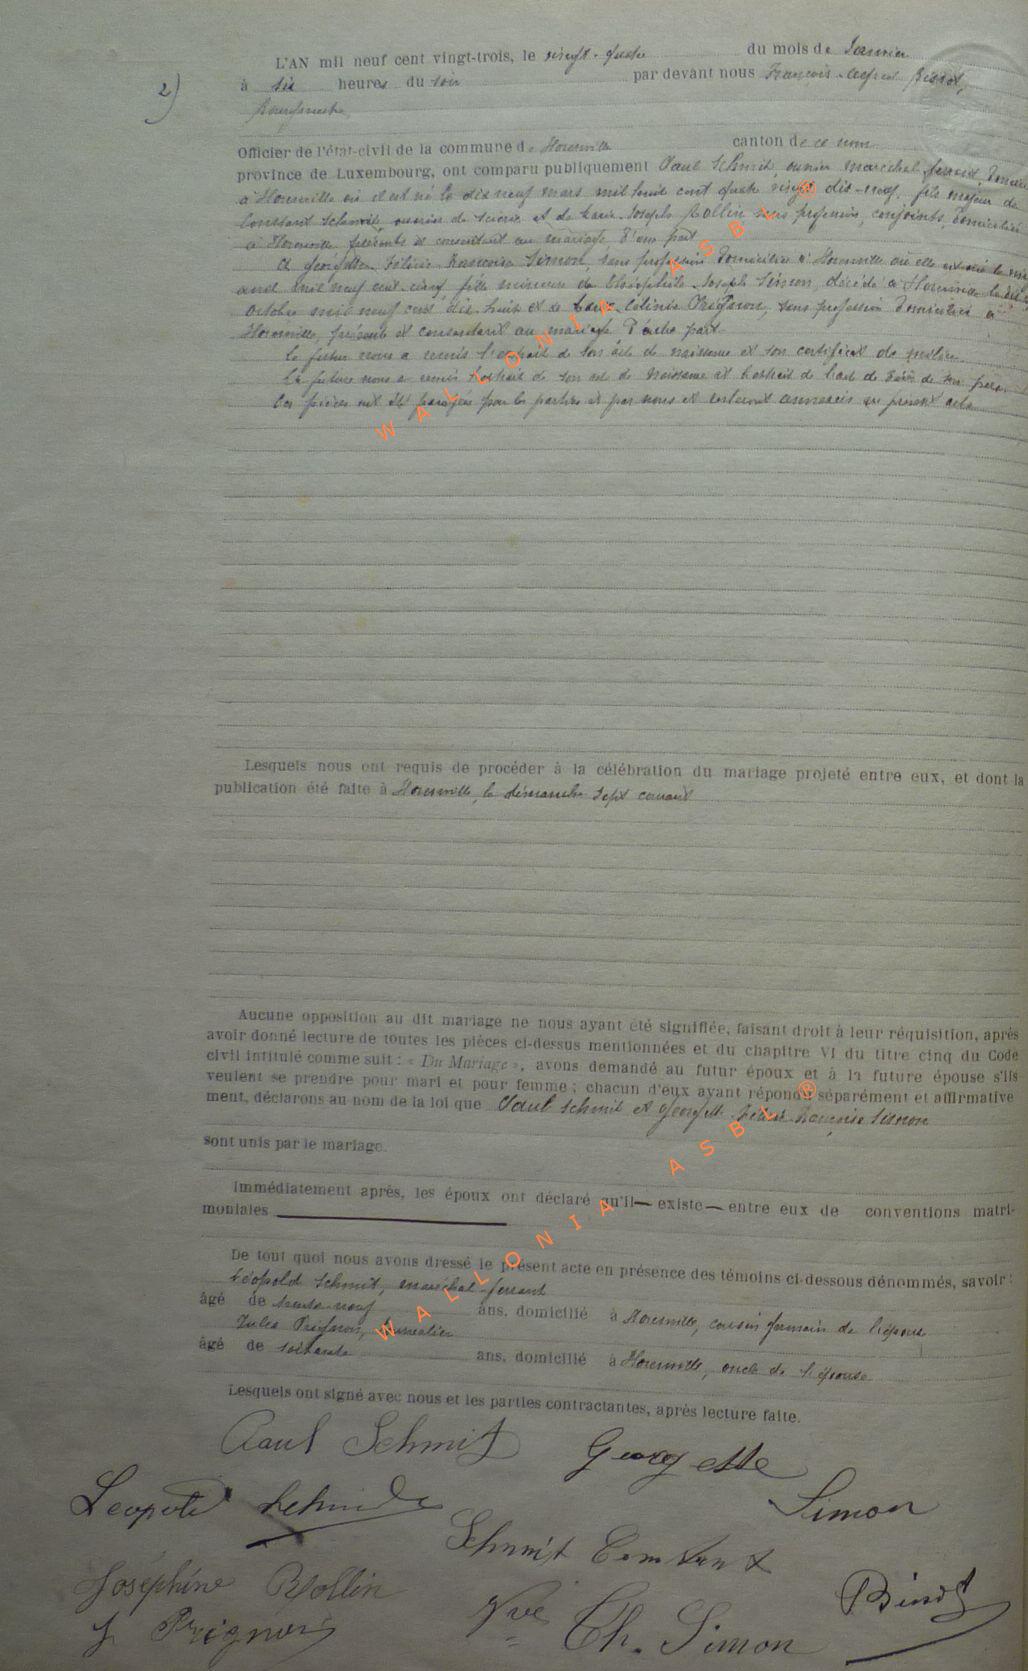 2)
L'AN mil neuf cent vingt-trois, le vingt-quatre du mois de Janvier
à six heures du soir par devant nous François Alfred Binot,
Bourgmestre
Officier de l'état-civil de la commune de Houmville canton de ce nom
province de Luxembourg, ont comparu publiquement Paul Schmit, ouvrier maréchal ferrant, domicilié
à où il est né le dix neuf mars mil huit cent quatre vingt dix-neuf, fils majeur de
Constant Schmit, ouvrier de et de Marie Josephe Rollin sans profession, conjoints, domiciliés
à présents et consentant au mariage, d'une part
Et Georgette Françoise Simon, sans profession domiciliée à où elle est née le
août mil neuf cent cinq, fille mineure de Théophile Joseph Simon, décédé à
octobre mil neuf cent dix huit et de Célinie Prignon, sans profession domiciliée à
présente et consentant au mariage d'autre part
Le futur nous a remis l'extrait de son acte de naissance et son certificat de milice.
La future nous a remis l'extrait de son acte de naissance et l'extrait de l'acte de décès de son père.
Ces pièces ont été paraphées par les parties et par nous et resteront annexées au présent acte
Lesquels nous ont requis de procéder à la célébration du mariage projeté entre eux, et dont la
publication été faite à le dimanche sept courant
Aucune opposition au dit mariage ne nous ayant été signifiée, faisant droit à leur réquisition, après
avoir donné lecture de toutes les pièces ci-dessus mentionnées et du chapitre VI du titre cinq du Code
civil intitulé comme suit : « Du Mariage », avons demandé au futur époux et à la future épouse s'ils
veulent se prendre pour mari et pour femme ; chacun d'eux ayant répondu séparément et affirmative
ment, déclarons au nom de la loi que Paul Schmit et Georgette Françoise Simon
sont unis par le mariage.
Immédiatement après, les époux ont déclaré qu'il — existe — entre eux de conventions matri-
moniales
De tout quoi nous avons dressé le présent acte en présence des témoins ci-dessous dénommés, savoir :
Léopold Schmit, maréchal-ferrant
âgé de trente-neuf ans, domicilié à cousin germain de l'époux
Jules Prignon,
âgé de soixante ans, domicilié à oncle de l'épouse
Lesquels ont signé avec nous et les parties contractantes, après lecture faite.
Paul Schmit Georgette
Simon
Léopold Schmit
Schmit Constant
Joséphine Rollin
Binot
J Prignon
Vve Th. Simon
WALLONIA ASBL ®
WALLONIA ASBL ®